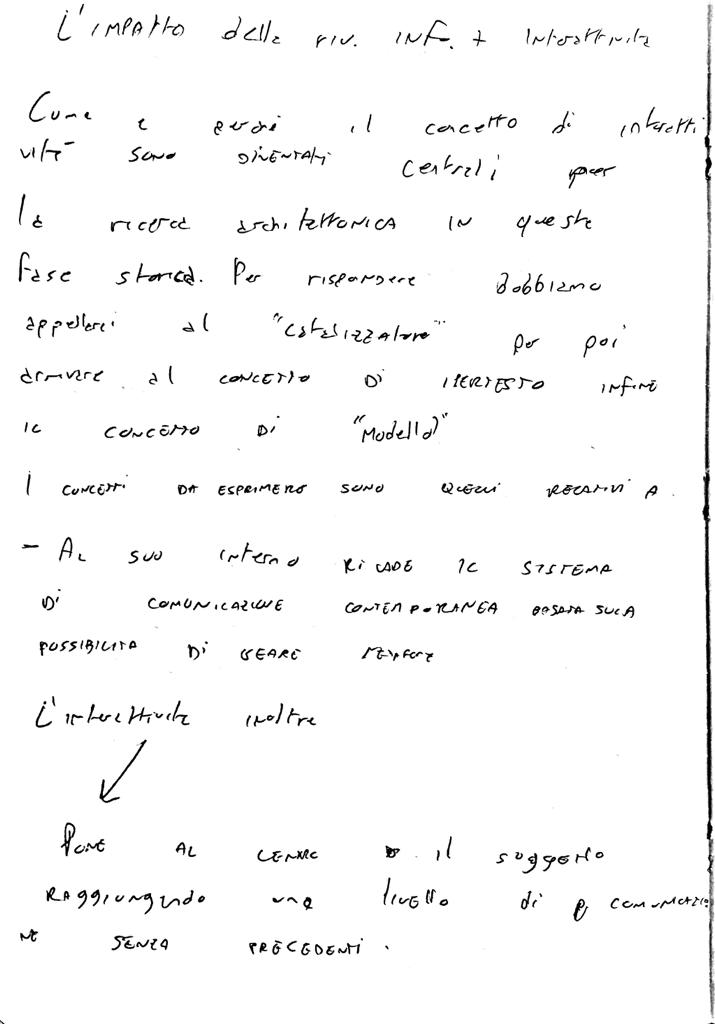 L'IMPATTO della riv. INF. + Interattività
Come e perché il concetto di interatti
vità sono DIVENTATI centrali per
la ricerca architettonica IN questa
fase storica. Per rispondere dobbiamo
appellarci al "catalizzatore" per poi
arrivare al CONCETTO DI IPERTESTO INFINE
IL CONCETTO DI "Modello)"
I CONCETTI DA ESPRIMERE SONO QUELLI RELATIVI A.
- AL SUO interno RICADE IL SISTEMA
DI COMUNICAZIONE CONTEMPORANEA BASATA SULLA
POSSIBILITA DI CREARE
L'interattività inoltre
PONE AL CENTRO il soggetto
RAGGIUNGENDO una livello di COMUNICAZIO
NE SENZA PRECEDENTI.